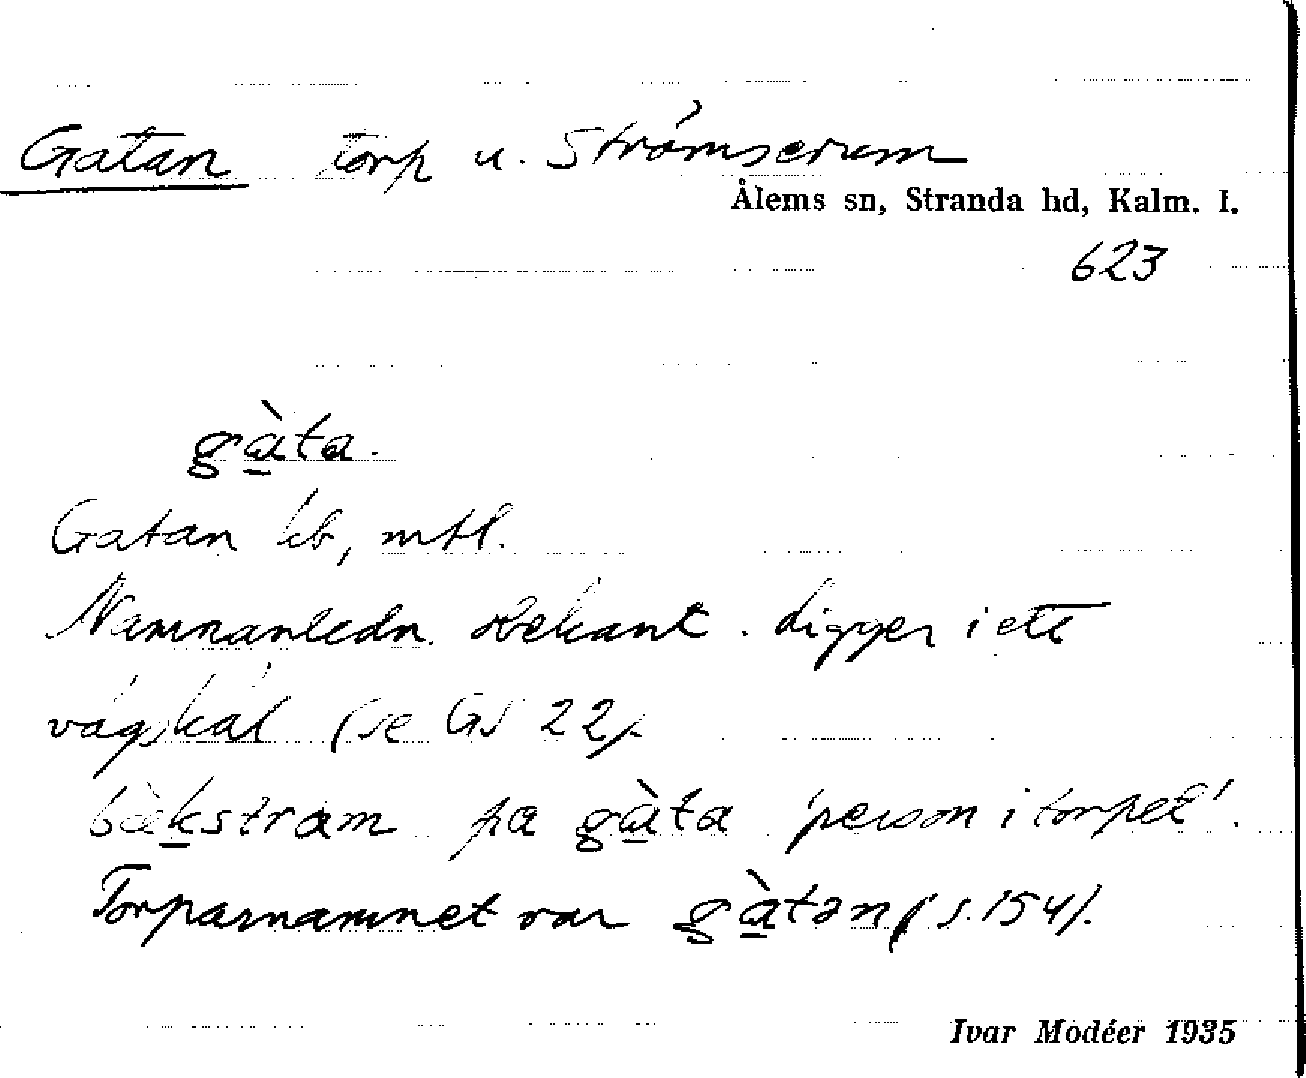 Gatan torp u. Strömserum
Ålems sn, Stranda hd, Kalm. l.
623
gà̱ta.
Gatan kb, mtl.
Namnanledn. obekant. Ligger i ett
vägskäl (se GS 22).
bæ̀ḵstram pa gà̱ta 'person i torpet'.
Torparnamnet var gà̱tən (s. 154).
Ivar Modéer 1935